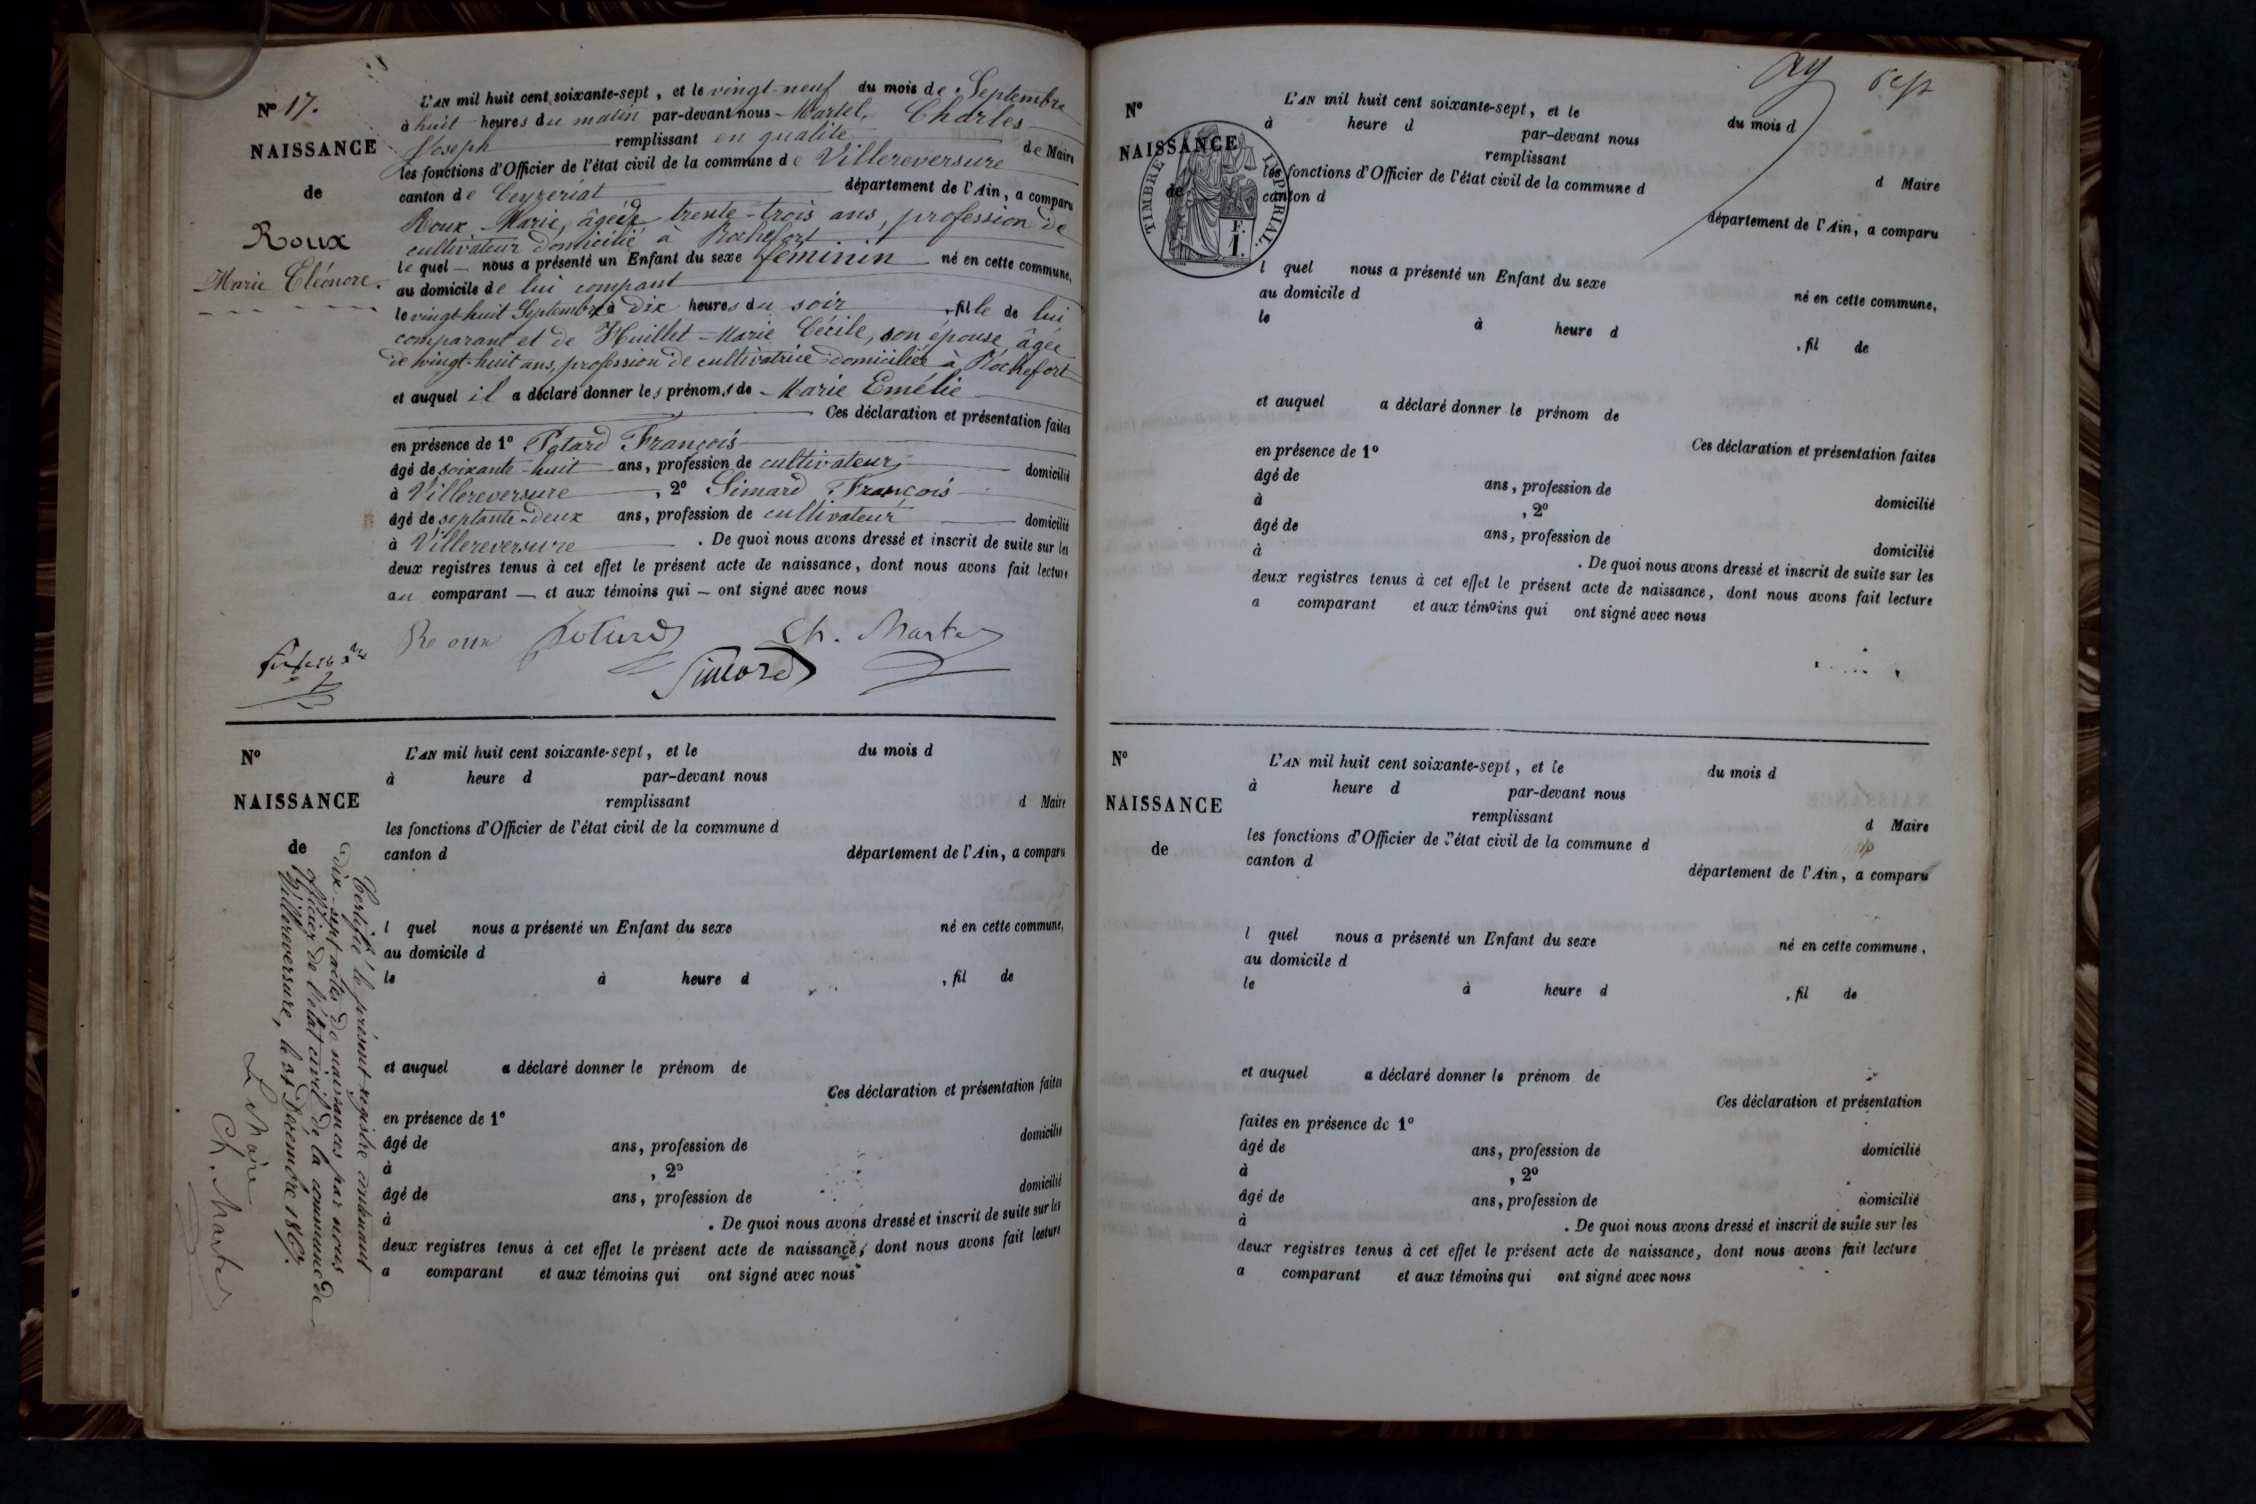 N° 17.
NAISSANCE
de
Roux
Marie Eléonore.
L'AN mil huit cent soixante-sept, et le vingt-neuf du mois de Septembre
à huit heures du matin par-devant nous Martel, Charles
Joseph remplissant en qualité de Maire
les fonctions d'Officier de l'état civil de la commune de Villereversure
canton de Ceyzériat département de l'Ain, a comparu
Roux Marie, âgé de trente-trois ans, profession de
cultivateur domicilié à Rochefort
lequel nous a présenté un Enfant du sexe féminin né en cette commune,
au domicile de lui comparant
le vingt-huit Septembre à dix heures du soir, fille de lui
comparant et de Huillet Marie Cécile, son épouse, âgée
de vingt-huit ans, profession de cultivatrice domiciliée à Rochefort
et auquel il a déclaré donner les prénoms de Marie Emélie
Ces déclaration et présentation faites
en présence de 1° Potard François
âgé de soixante-huit ans, profession de cultivateur domicilié
à Villereversure, 2° Simard François
âgé de septante-deux ans, profession de cultivateur domicilié
à Villereversure. De quoi nous avons dressé et inscrit de suite sur les
deux registres tenus à cet effet le présent acte de naissance, dont nous avons fait lecture
au comparant et aux témoins qui ont signé avec nous
Roux Potard Ch. Martel
Simard
N°
NAISSANCE
de
L'AN mil huit cent soixante-sept, et le du mois d
à heure d par-devant nous
remplissant d Maire
les fonctions d'Officier de l'état civil de la commune d
canton d département de l'Ain, a comparu
l quel nous a présenté un Enfant du sexe né en cette commune,
au domicile d
le à heure d , fil de
et auquel a déclaré donner le prénom de
Ces déclaration et présentation faites
en présence de 1°
âgé de ans, profession de domicilié
à , 2°
âgé de ans, profession de domicilié
à . De quoi nous avons dressé et inscrit de suite sur les
deux registres tenus à cet effet le présent acte de naissance, dont nous avons fait lecture
a comparant et aux témoins qui ont signé avec nous
Certifié le présent registre contenant
dix-sept actes de naissances par nous
officier de l'état civil de la commune de
Villereversure, le 31 Décembre 1867.
Le Maire
Ch. Martel
N°
NAISSANCE
de
TIMBRE IMPÉRIAL
1 F.
L'AN mil huit cent soixante-sept, et le du mois d
à heure d par-devant nous
remplissant d Maire
les fonctions d'Officier de l'état civil de la commune d
canton d département de l'Ain, a comparu
l quel nous a présenté un Enfant du sexe né en cette commune,
au domicile d
le à heure d , fil de
et auquel a déclaré donner le prénom de
Ces déclaration et présentation faites
en présence de 1°
âgé de ans, profession de domicilié
à , 2°
âgé de ans, profession de domicilié
à . De quoi nous avons dressé et inscrit de suite sur les
deux registres tenus à cet effet le présent acte de naissance, dont nous avons fait lecture
a comparant et aux témoins qui ont signé avec nous
N°
NAISSANCE
de
L'AN mil huit cent soixante-sept, et le du mois d
à heure d par-devant nous
remplissant d Maire
les fonctions d'Officier de l'état civil de la commune d
canton d département de l'Ain, a comparu
l quel nous a présenté un Enfant du sexe né en cette commune,
au domicile d
le à heure d , fil de
et auquel a déclaré donner le prénom de
Ces déclaration et présentation
faites en présence de 1°
âgé de ans, profession de domicilié
à , 2°
âgé de ans, profession de domicilié
à . De quoi nous avons dressé et inscrit de suite sur les
deux registres tenus à cet effet le présent acte de naissance, dont nous avons fait lecture
a comparant et aux témoins qui ont signé avec nous